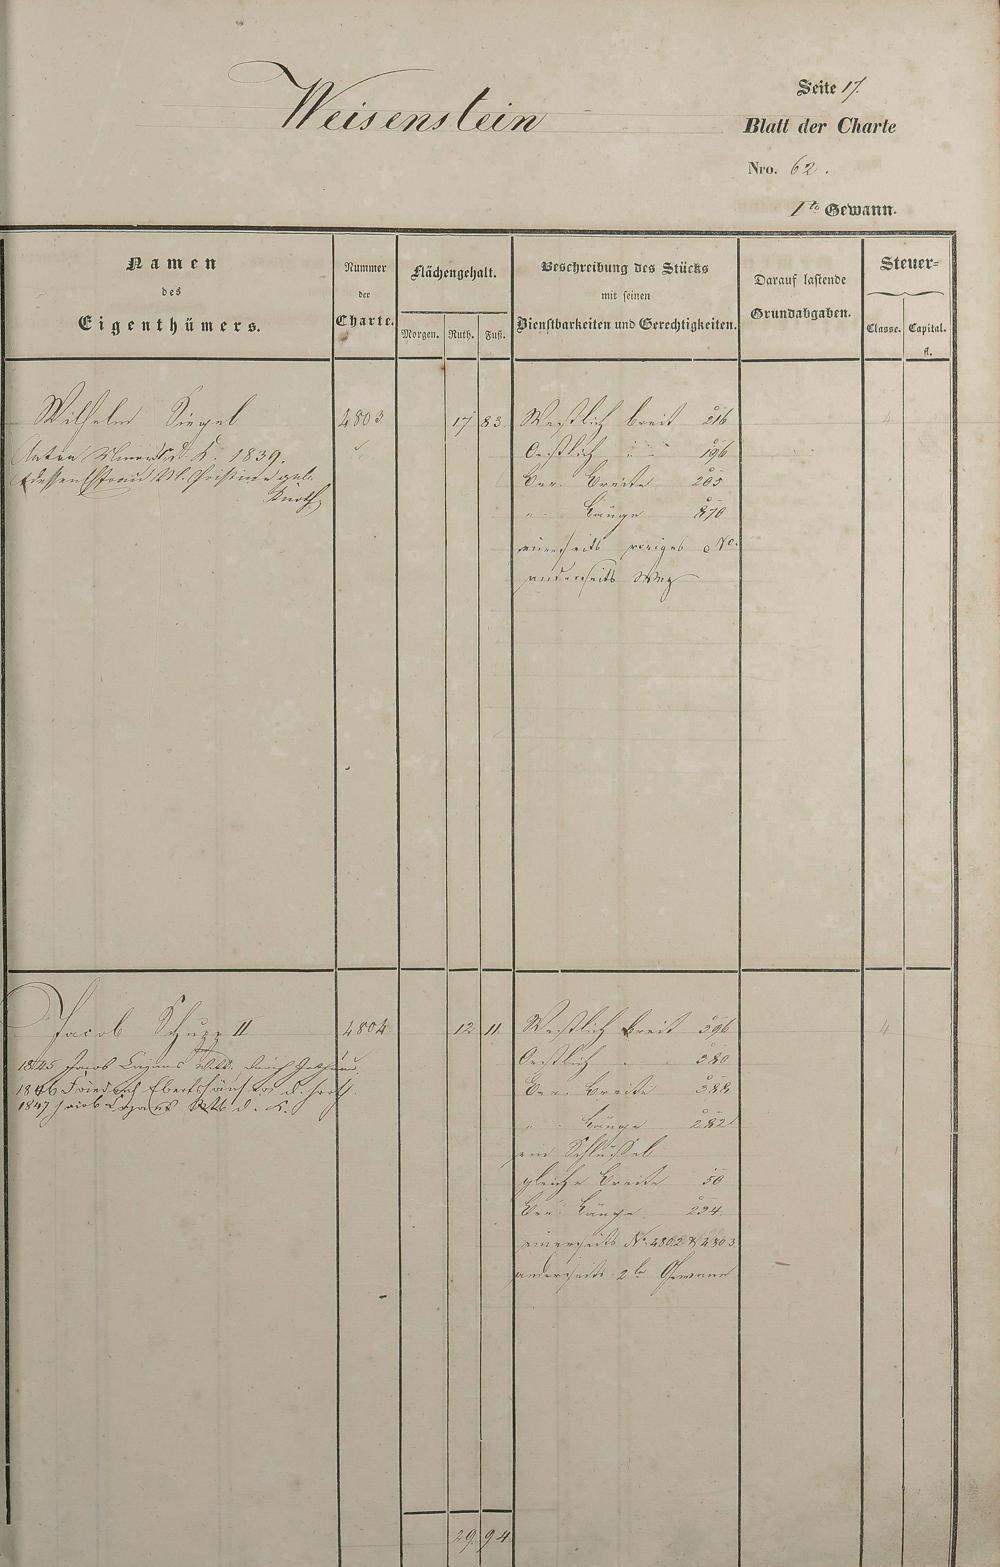 Weisenstein
Seite 17.
Blatt der Charte
Nro. 62.
1te Gewann.
Namen
des
Eigenthümers.
Nummer
der
Charte.
Flächengehalt.
Morgen. Ruth. Fuß.
Beschreibung des Stücks
mit seinen
Dienstbarkeiten und Gerechtigkeiten.
Darauf lastende
Grundabgaben.
Steuer-
Classe. Capital.
fl.
Wilhelm Siegel 4803 17 83 Westlich breit 216
Oestlich " " 196
Ber. Breite 205
" Länge 870
einerseits voriges No.
anderseits Weg
Anton K. 1839.
Christine geb.
Knoth
Jacob Schupp II 4804 12 11 Westlich breit 396 4
Oestlich " 380
Ber. Breite 388
" Länge 282
ein Schlüssel
gleiche Breite 50
Ber. Länge 234
einerseits No. 4802 & 4803
anderseits 2te Gewann
1845 Jacob
1846 Friedrich
1847 Jacob d. K.
29 94